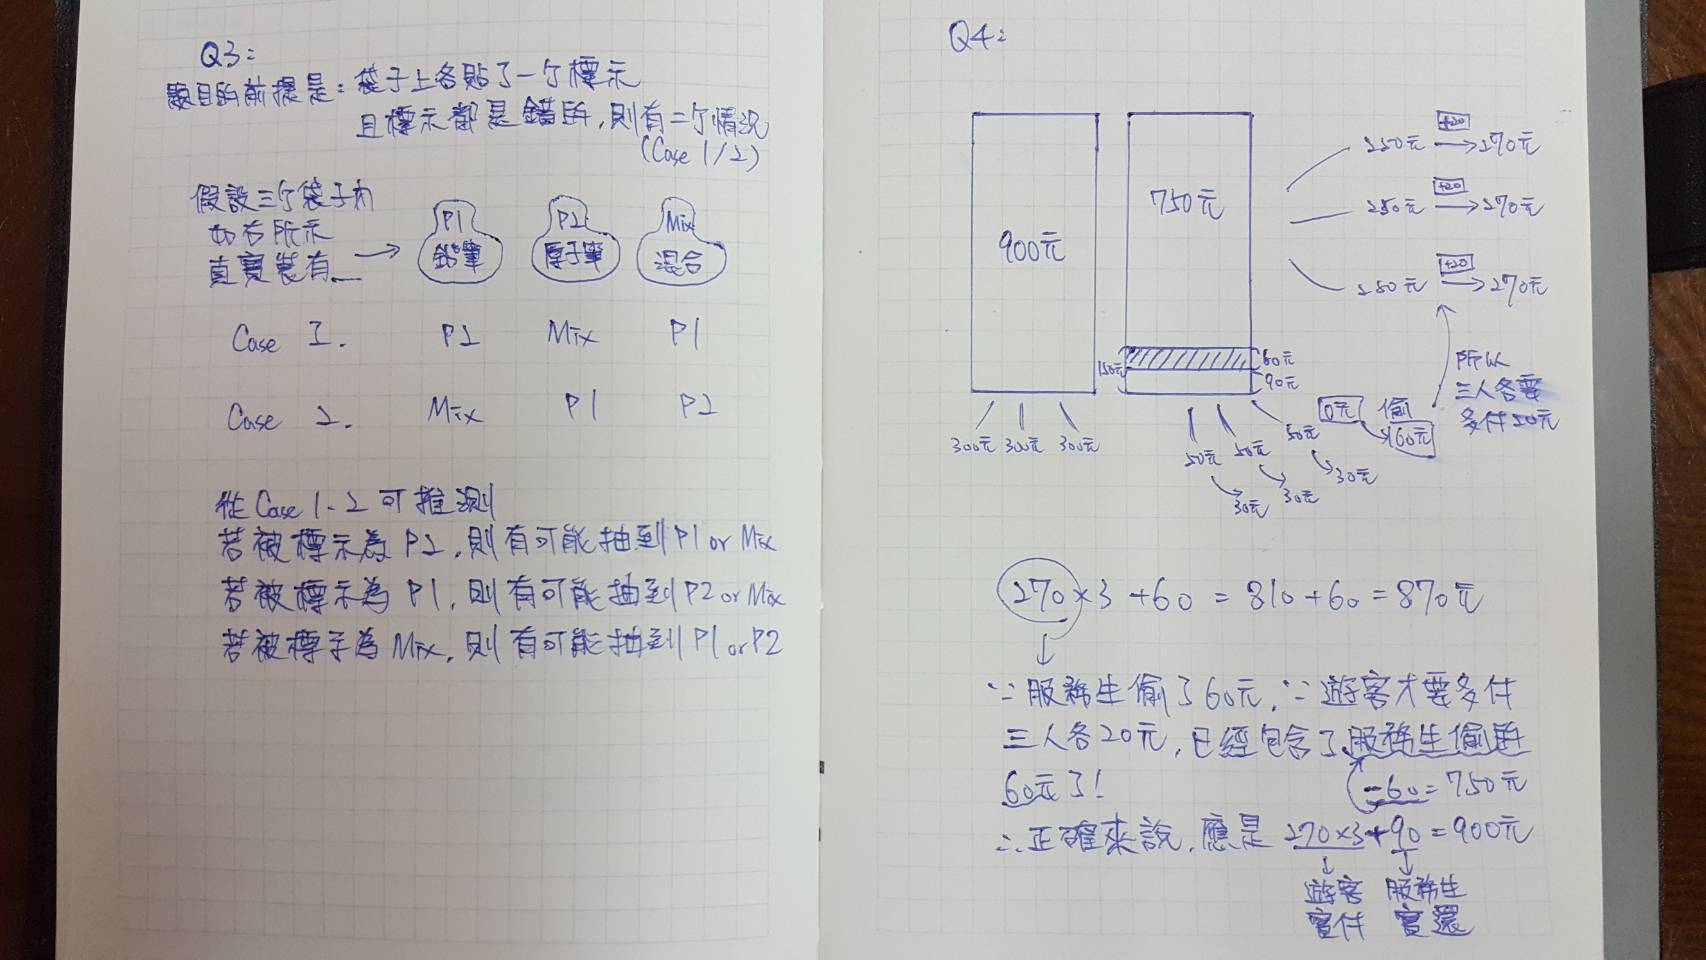 Q3:
題目的前提是:袋子上各貼了一个標示
且標示都是錯的,則有二个情況
(Case 1/2)
假設三个袋子內
如右所示
真實裝有__→
P1
鉛筆
P2
原子筆
Mix
混合
Case 1. P2 Mix P1
Case 2. Mix P1 P2
從Case 1、2 可推測
若被標示為 P2,則有可能抽到P1 or Mix
若被標示為 P1,則有可能抽到P2 or Mix
若被標子為 Mix,則有可能抽到P1 or P2
Q4:
900元
300元 300元 300元
750元
150元
60元
90元
250元 +20 → 270元
250元 +20 → 270元
250元 +20 → 270元
所以
三人各要
多付20元
0元 偷
60元
50元 50元 50元
30元 30元 30元
270×3+60 = 810+60 = 870元
∵服務生偷了60元,∵遊客才要多付
三人各20元,已經包含了服務生偷的
60元了!
-60 = 750元
∴正確來說,應是 270×3+90 = 900元
遊客
實付
服務生
實還